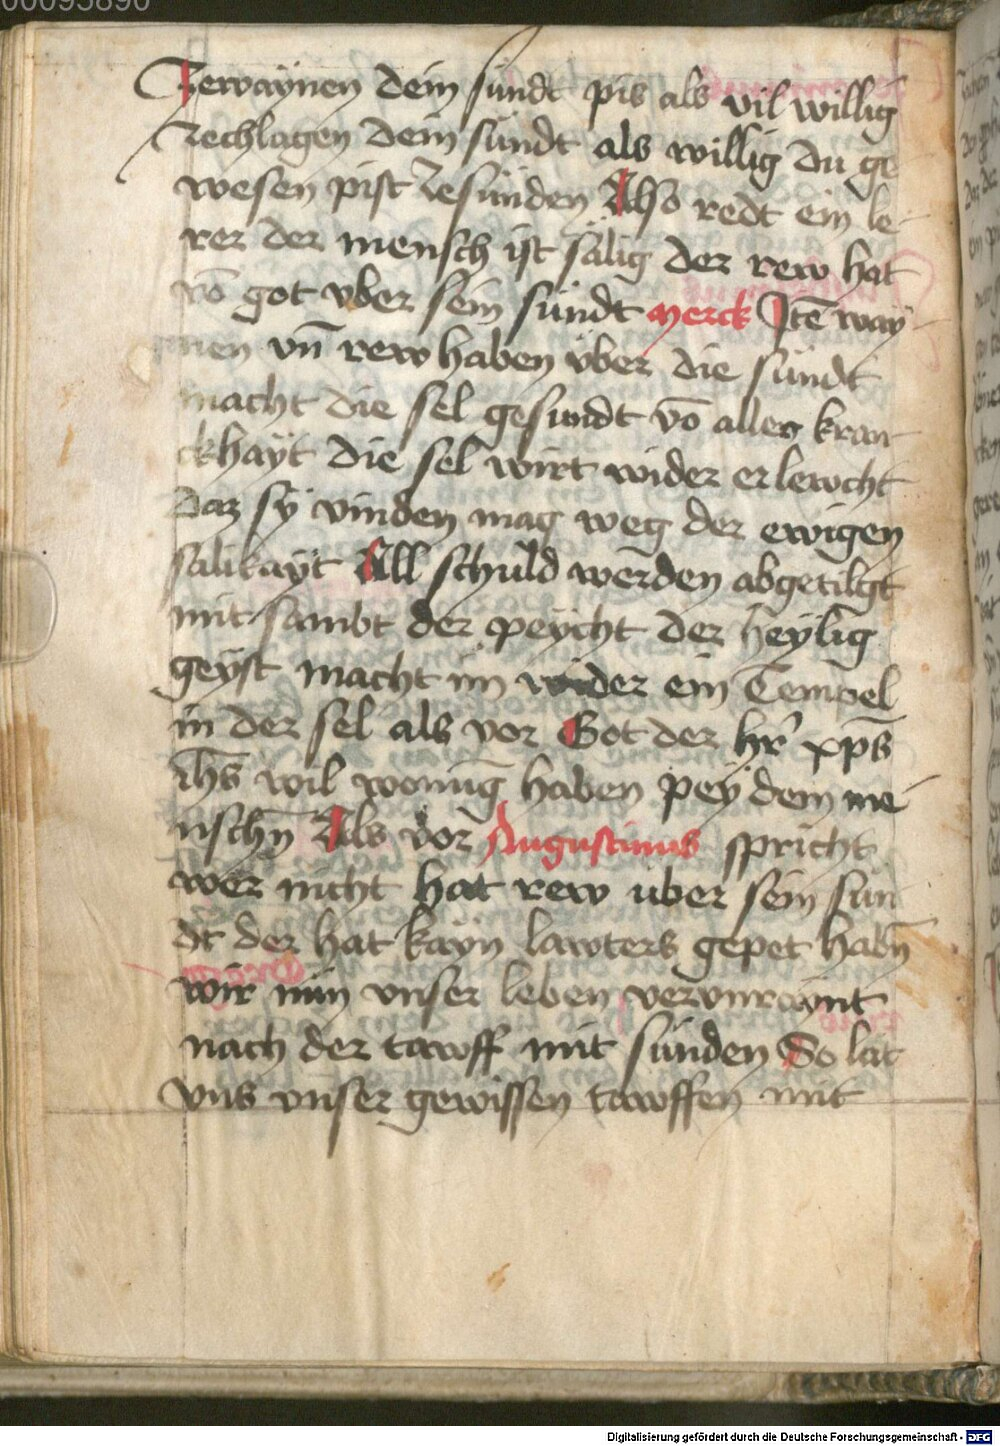 00095890
Zewaÿnen dein sündt pis als vil willig
Zechlagen dein sündt als willig du ge
wesen pist Zesünden Also redt ein le-
rer der mensch ist sälig der rew hat
vō got vber sein sündt Merck Itē way-
nen vn̄ rew haben vber die sündt
macht die sel gesundt vō aller kran-
ckhaÿt die sel wirt wider erlewcht
daz sÿ vinden mag weg der ewigen
salikaÿt All schuld werden abgetilgt
mit sambt der peÿcht der heÿlig
geÿst macht im wider ein Tempel
in der sel als vor Got der hr̄ xp̄s
ih̄s wil wonūg haben peÿ dem me-
nschn̄ Als vor Augustinus spricht
wer nicht hat rew über sein sün
dt der hat kayn lawters gepet habn̄
wir nün vnser leben vervnraynt
nach der tawff mit sünden So lat
vns vnser gewissen tawffen mit
Digitalisierung gefördert durch die Deutsche Forschungsgemeinschaft - DFG